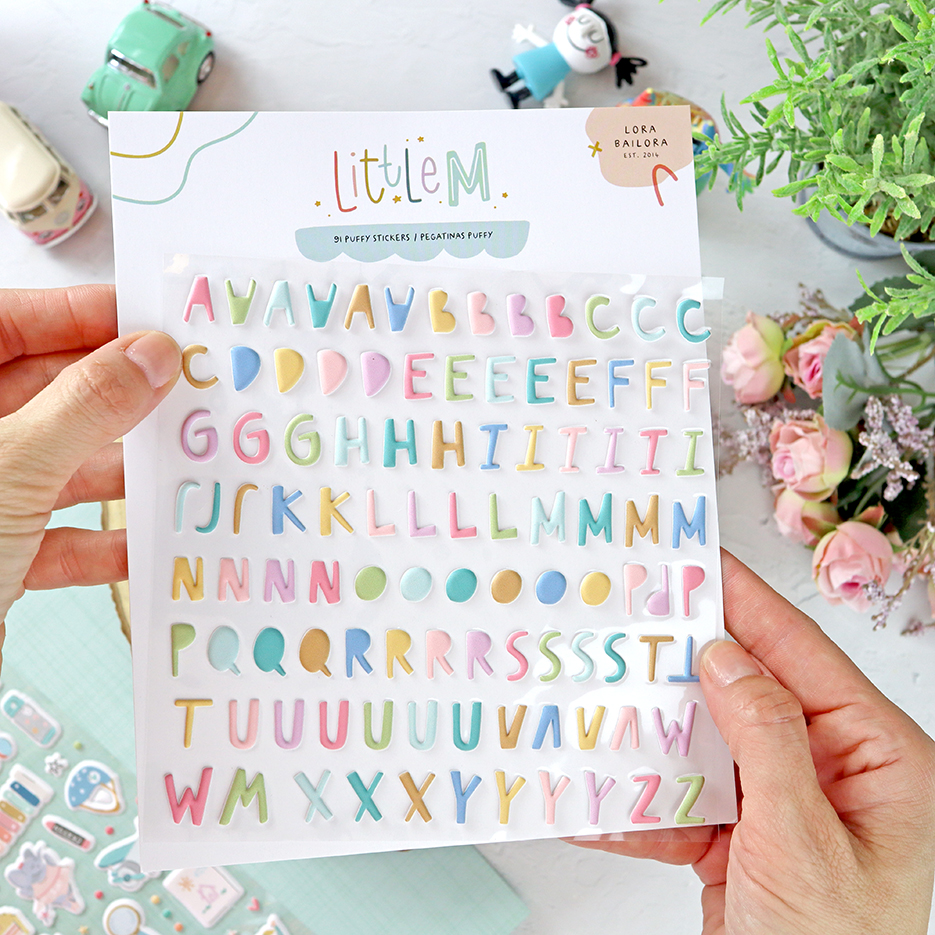 LittLe M
LORA
BAILORA
EST. 2014
91 PUFFY STICKERS / PEGATINAS PUFFY
A A A A A A B B B B C C C
C D D D D E E E E E F F F
G G G H H H I I I I I I
J J J K K L L L L M M M M
N N N N O O O O O O P P P
P Q Q Q R R R R S S S S T T
T U U U U U U V V V V W
W M X X X Y Y Y Y Z Z